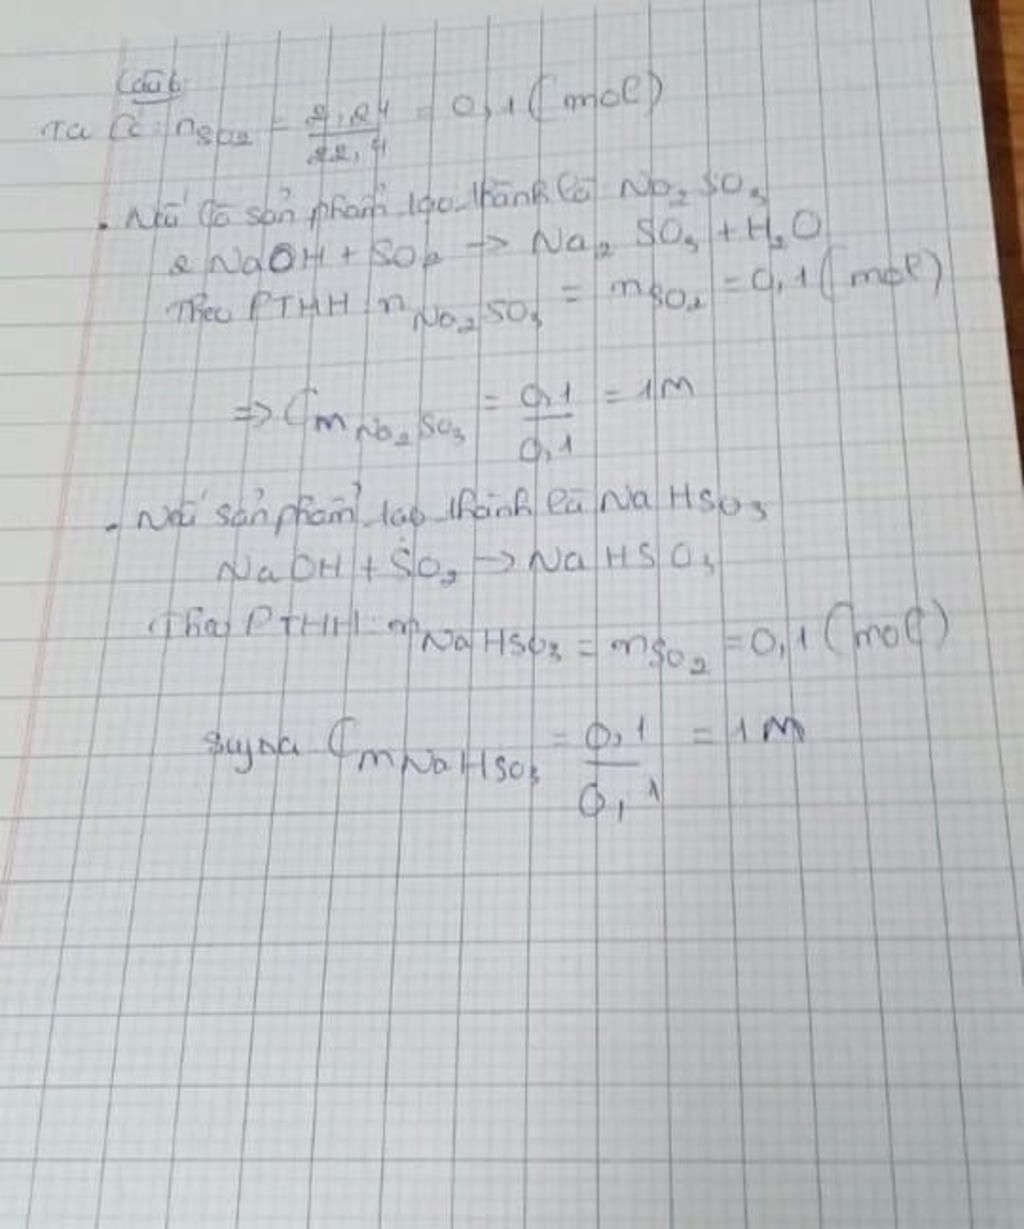 Câu 6
Ta có: nSO2 = 2,24/22,4 = 0,1 (mol)
. Nếu là sản phẩm tạo thành là Na2SO3
2 NaOH + SO2 → Na2SO3 + H2O
Theo PTHH nNa2SO3 = nSO2 = 0,1 (mol)
=> CM Na2SO3 = 0,1/0,1 = 1M
. Nếu sản phẩm tạo thành là NaHSO3
NaOH + SO2 → NaHSO3
Theo PTHH nNaHSO3 = nSO2 = 0,1 (mol)
Suy ra CM NaHSO3 = 0,1/0,1 = 1M